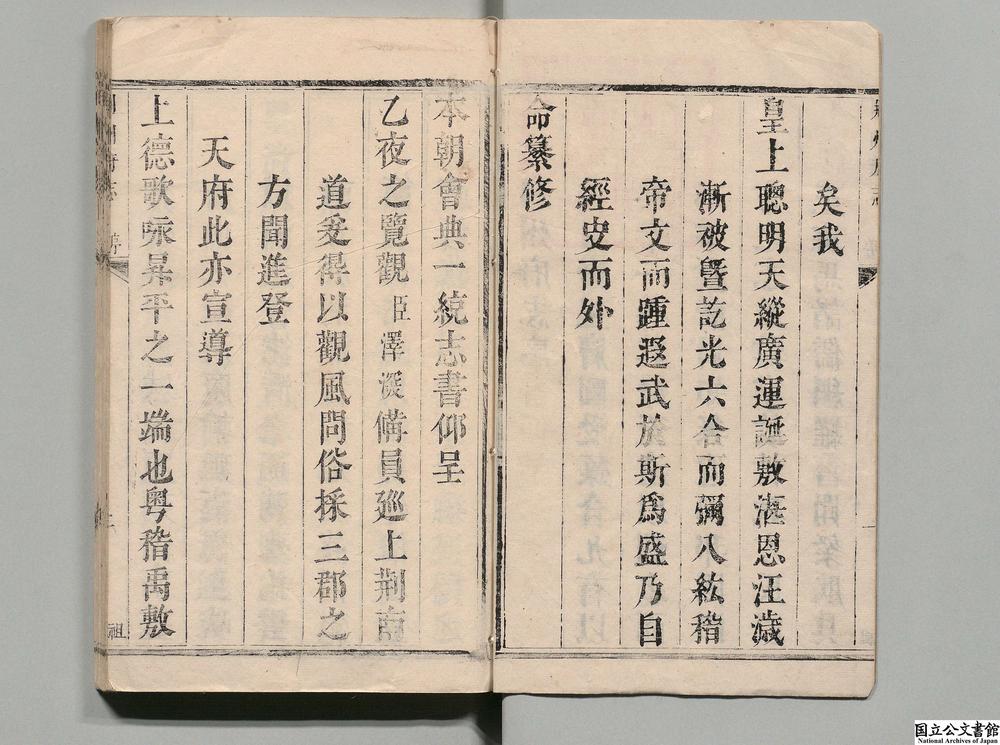 矣我
皇上聰明天縱廣運誕敷湛恩汪濊
漸被曁訖光六合而彌八紘稽
帝文而踵遐武於斯爲盛乃自
經史而外
命纂修
本朝會典一統志書仰呈
乙夜之覽觀臣澤深備員廵上荆南
道爰得以觀風問俗採三郡之
方聞進登
天府此亦宣導
上德歌咏昇平之一端也粤稽禹敷
序
祖
国立公文書館
National Archives of Japan